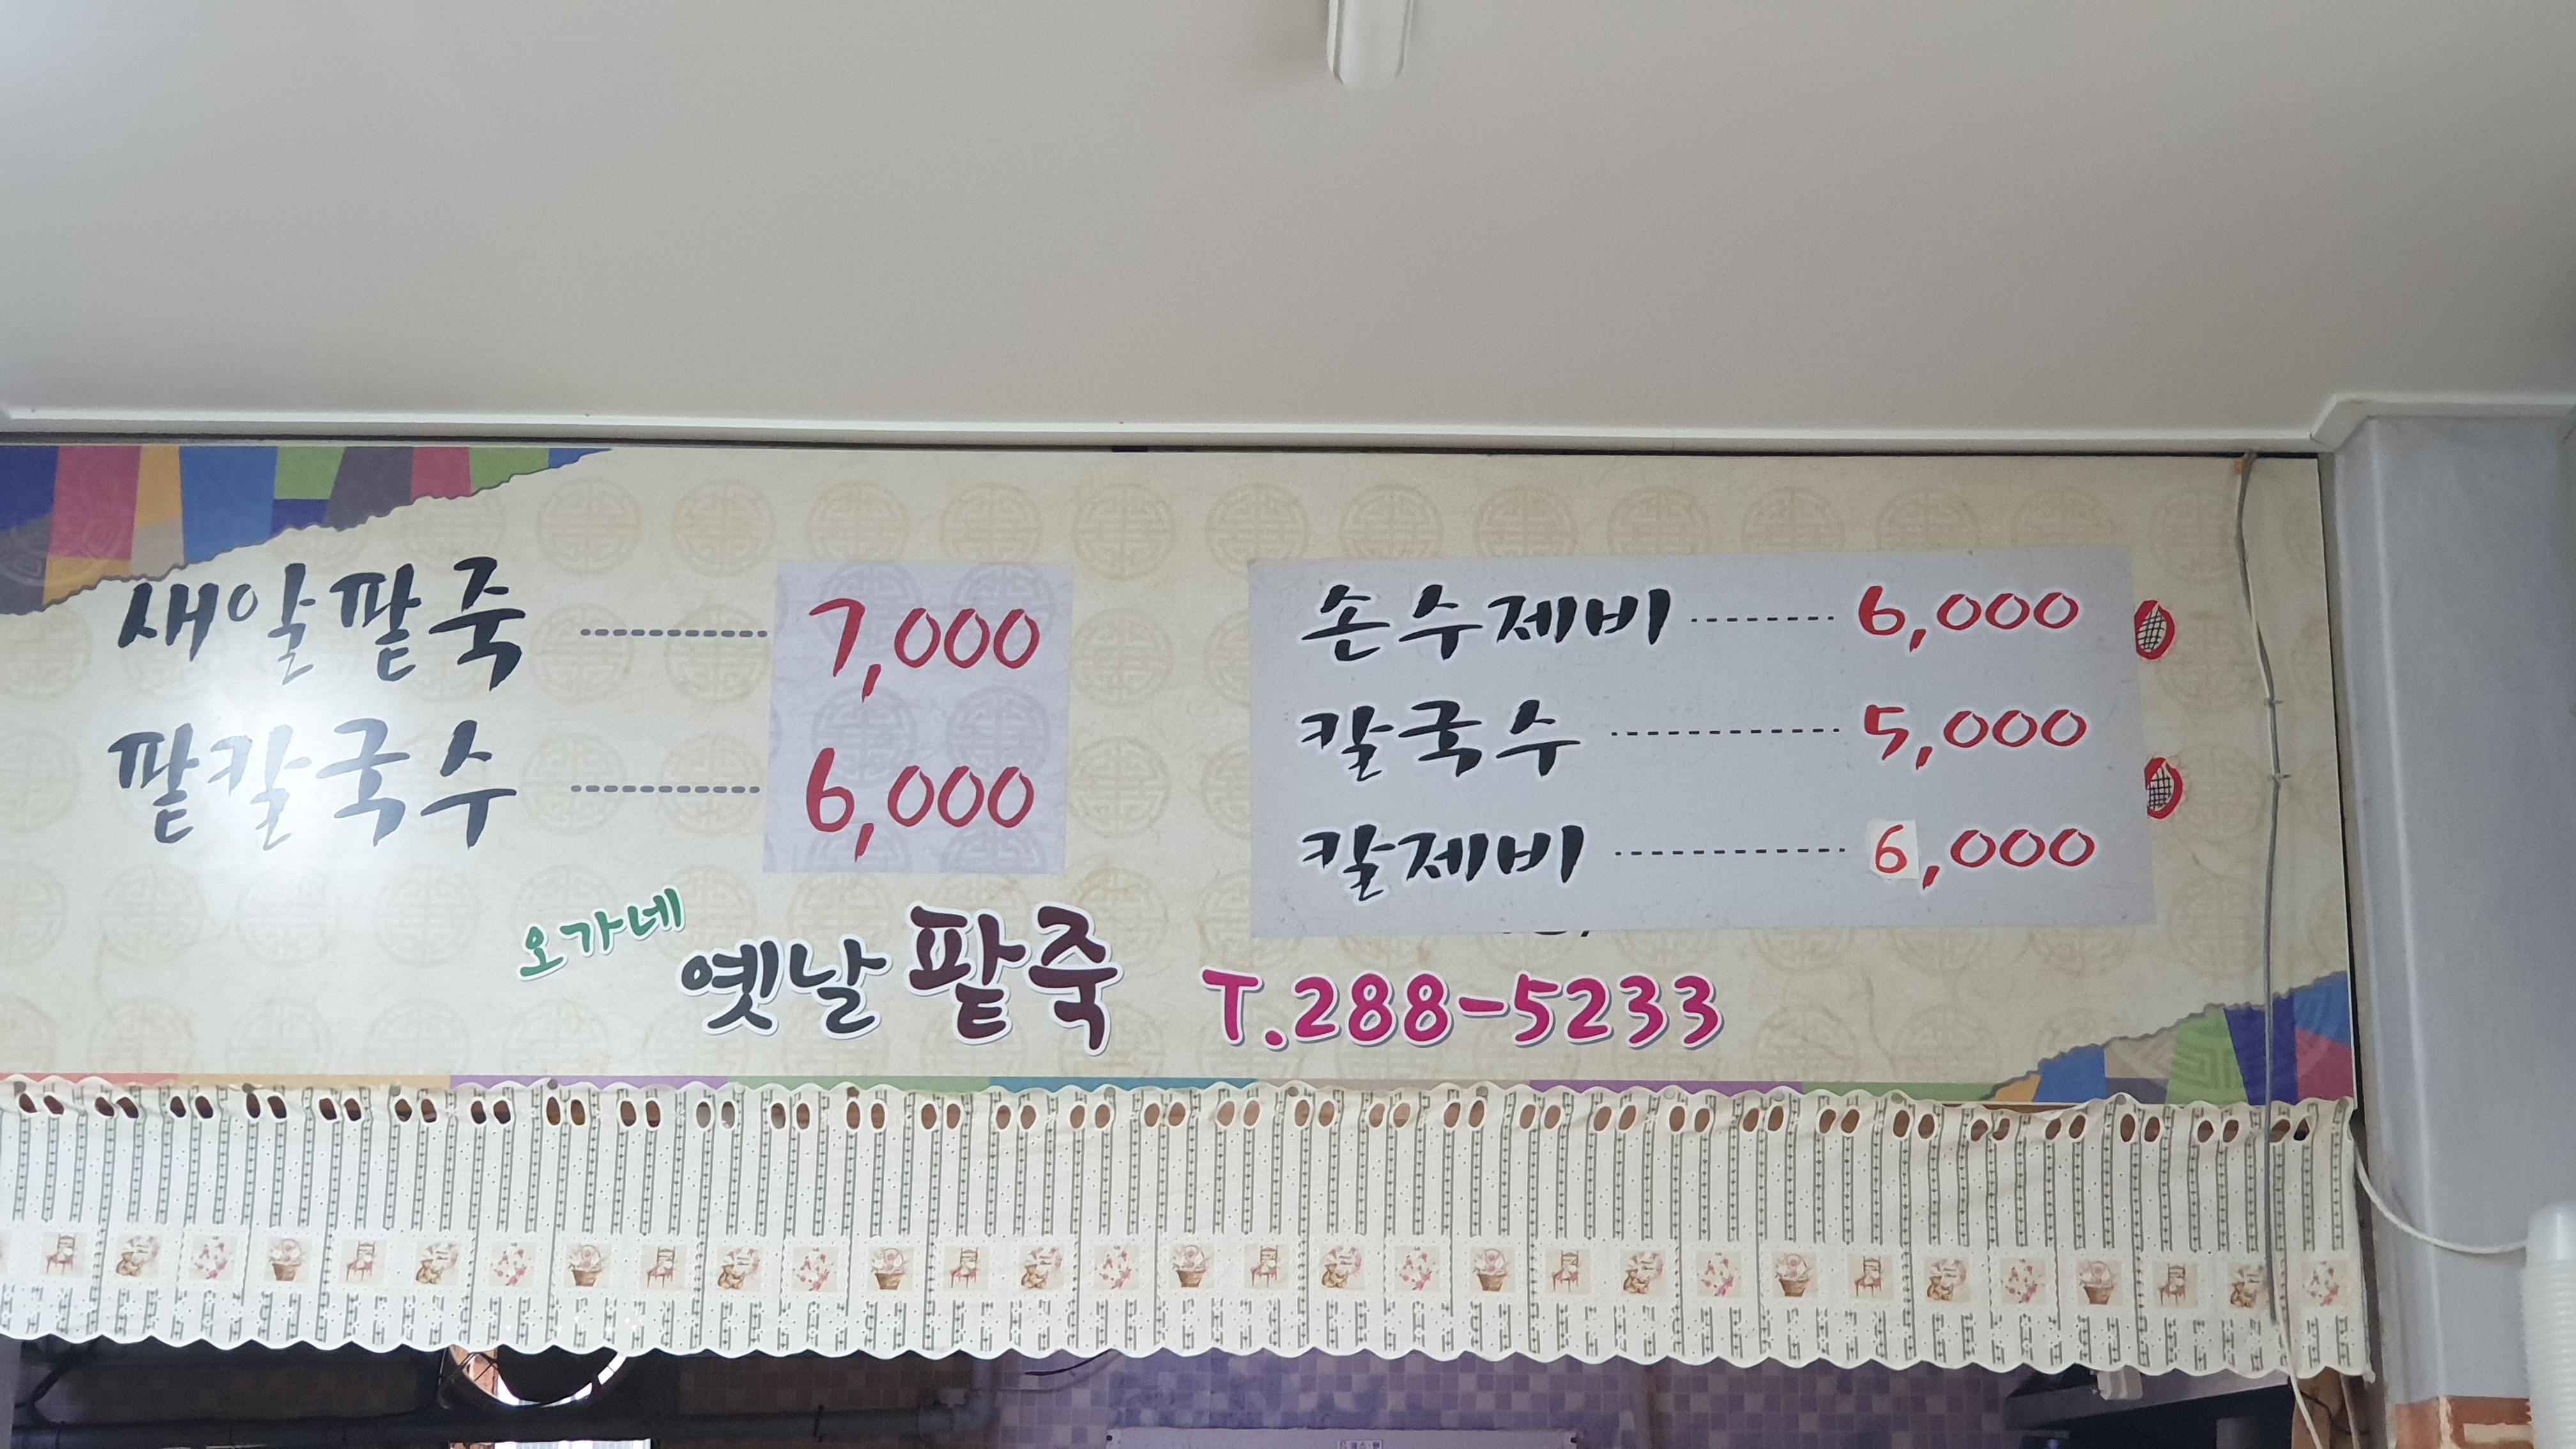 새알팥죽 ---------- 7,000
팥칼국수 ---------- 6,000
손수제비 ---------- 6,000
칼국수 ---------- 5,000
칼제비 ---------- 6,000
오가네
옛날 팥죽 T.288-5233